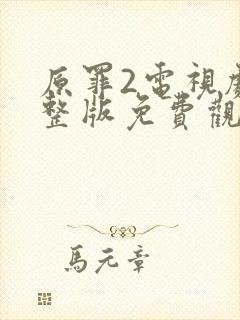 原罪2電視劇
整版免費觀
馬元章